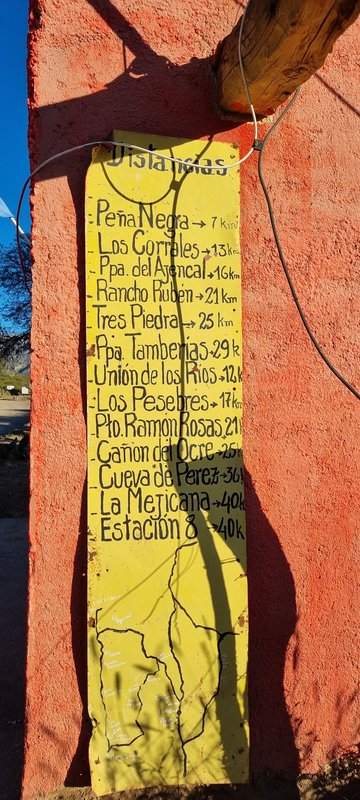 Distancias
- Peña Negra → 7 km
- Los Corrales → 13 km
- Ppa. del Ajencal → 16 km
- Rancho Rubén → 21 km
- Tres Piedra → 25 km
- Ppa. Tamberias → 29 k
- Unión de los Ríos → 12 k
- Los Pesebres → 17 km
- Pto. Ramon Rosas, 21
- Cañon del Ocre → 25
- Cueva de Perez → 36
- La Mejicana → 40k
- Estación 8 → 40k